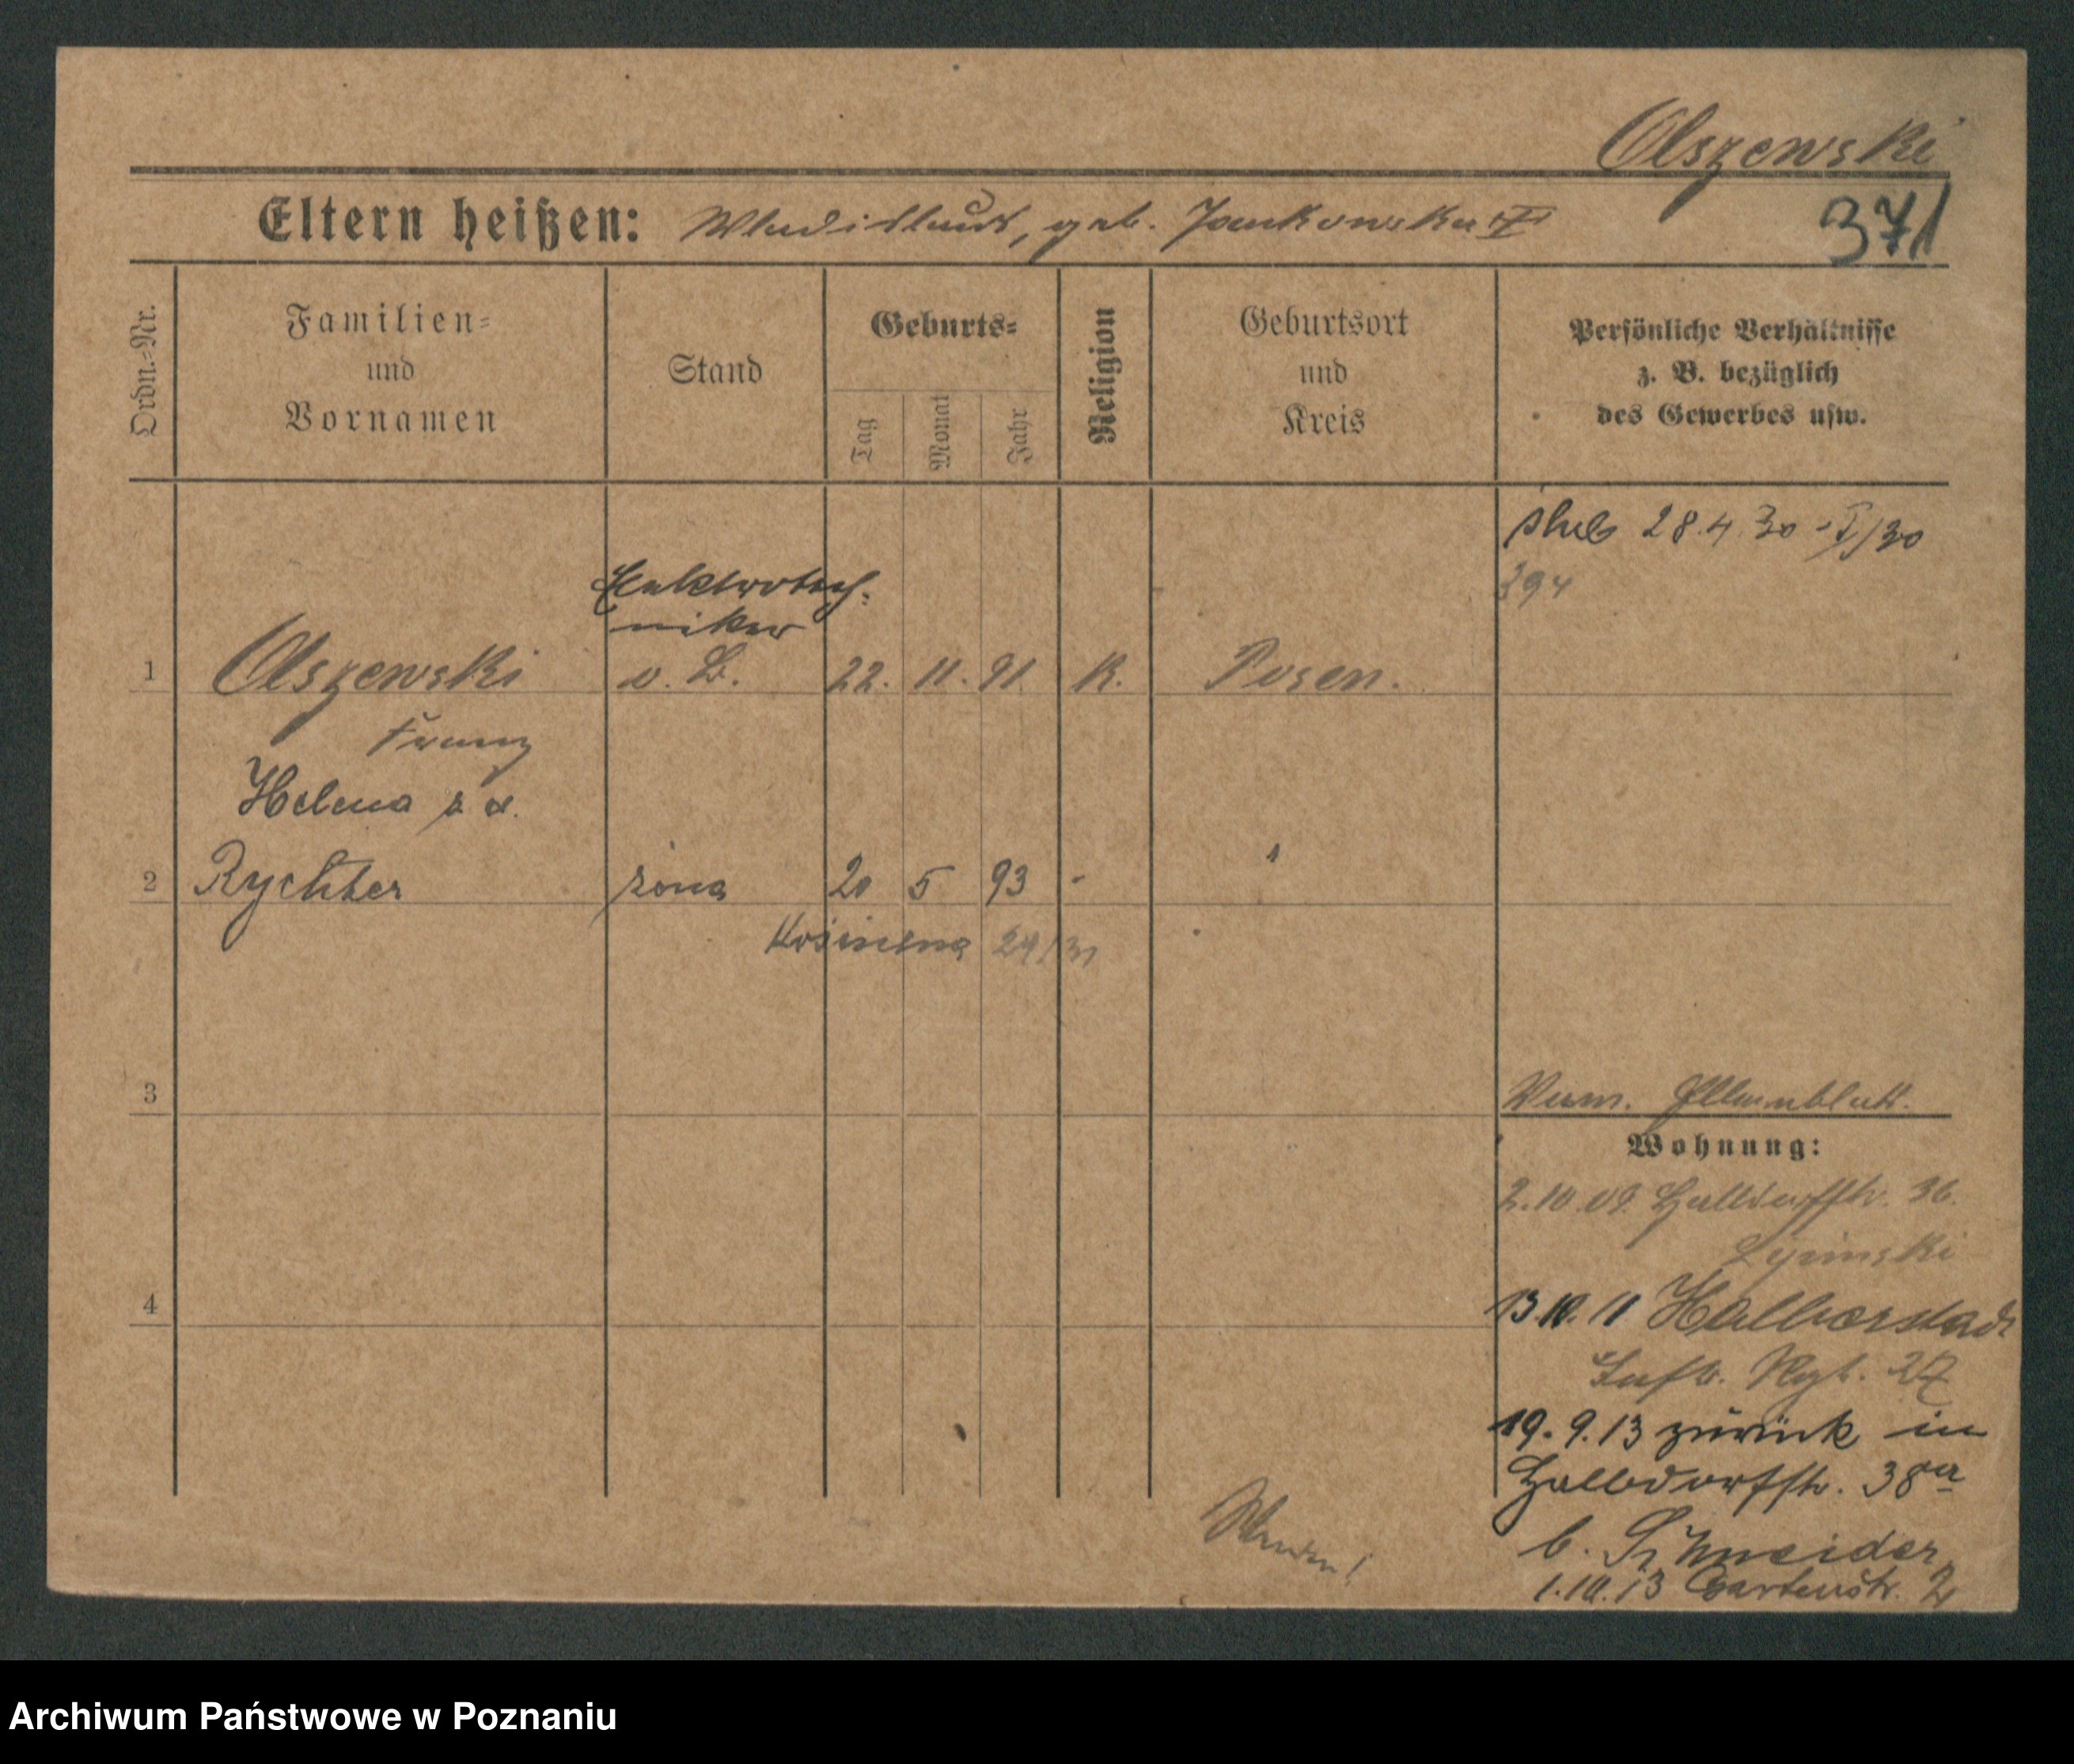 Olszewski
Eltern heißen: Wladislaus, geb. Jankowska
371
Ordn.-Nr.
Familien-
und
Vornamen
Stand
Geburts-
Tag
Monat
Jahr
Religion
Geburtsort
und
Kreis
Persönliche Verhältnisse
z. B. bezüglich
des Gewerbes usw.
ślub 28.4.30
394
Elektrotech-
niker
1 Olszewski
22. 11. 91 K. Posen.
Franz
Helena z d.
2 Rychter żona 20 5 93
24/31
3
Wohnung:
2.10.09. Halbdorfstr. 36.
4
13.10.11 Halberstadt
Inftr. Rgt. 27
19.9.13 zurück in
Halbdorfstr. 38a
b. Schneider
1.10.13 Gartenstr. 2
Archiwum Państwowe w Poznaniu